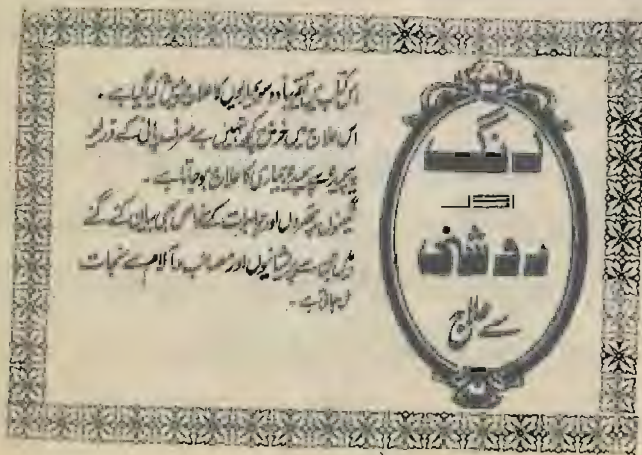 رنگ
اور
روشنی
سے علاج
اس کتاب میں تقریباً دو سو بیماریوں کا علاج پیش کیا گیا ہے ۔
اس علاج میں خرچ کچھ نہیں ہے صرف پانی کے ذریعہ
پیچیدہ سے پیچیدہ بیماری کا علاج ہو جاتا ہے ۔
نگینوں پتھروں اور جواہرات کے خواص بھی بیان کئے گئے
ہیں جن سے پریشانیوں اور مصائب و آلام سے نجات
مل جاتی ہے ۔